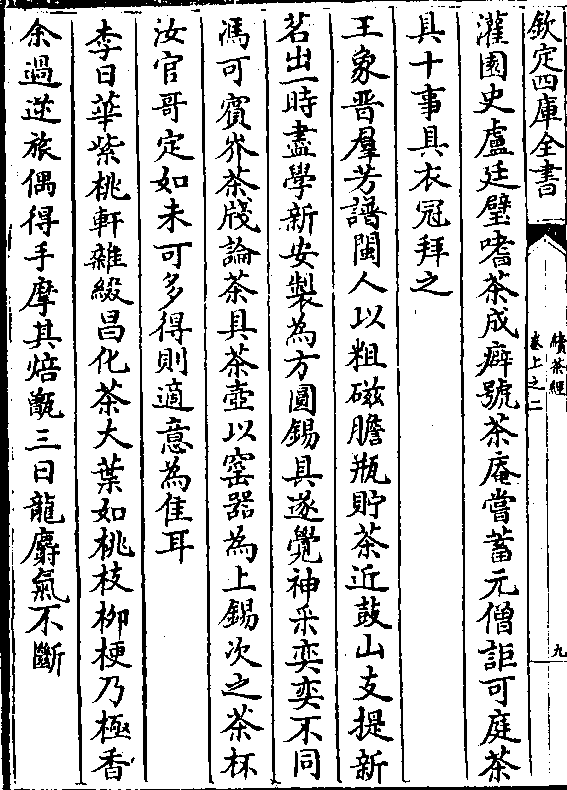 欽定四庫全書
續茶經
卷上之二
九
灌園史盧廷璧嗜茶成癖號茶庵嘗蓄元僧詎可庭茶
具十事具衣冠拜之
王象晋羣芳譜閩人以粗磁膽瓶貯茶近鼓山支提新
茗出一時盡學新安製為方圓錫具遂覺神采奕奕不同
馮可賓岕茶牋論茶具茶壺以窑器為上錫次之茶杯
汝官哥定如未可多得則適意為佳耳
李日華紫桃軒雜綴昌化茶大葉如桃枝栁梗乃極香
余過逆旅偶得手摩其焙甑三日龍麝氣不斷